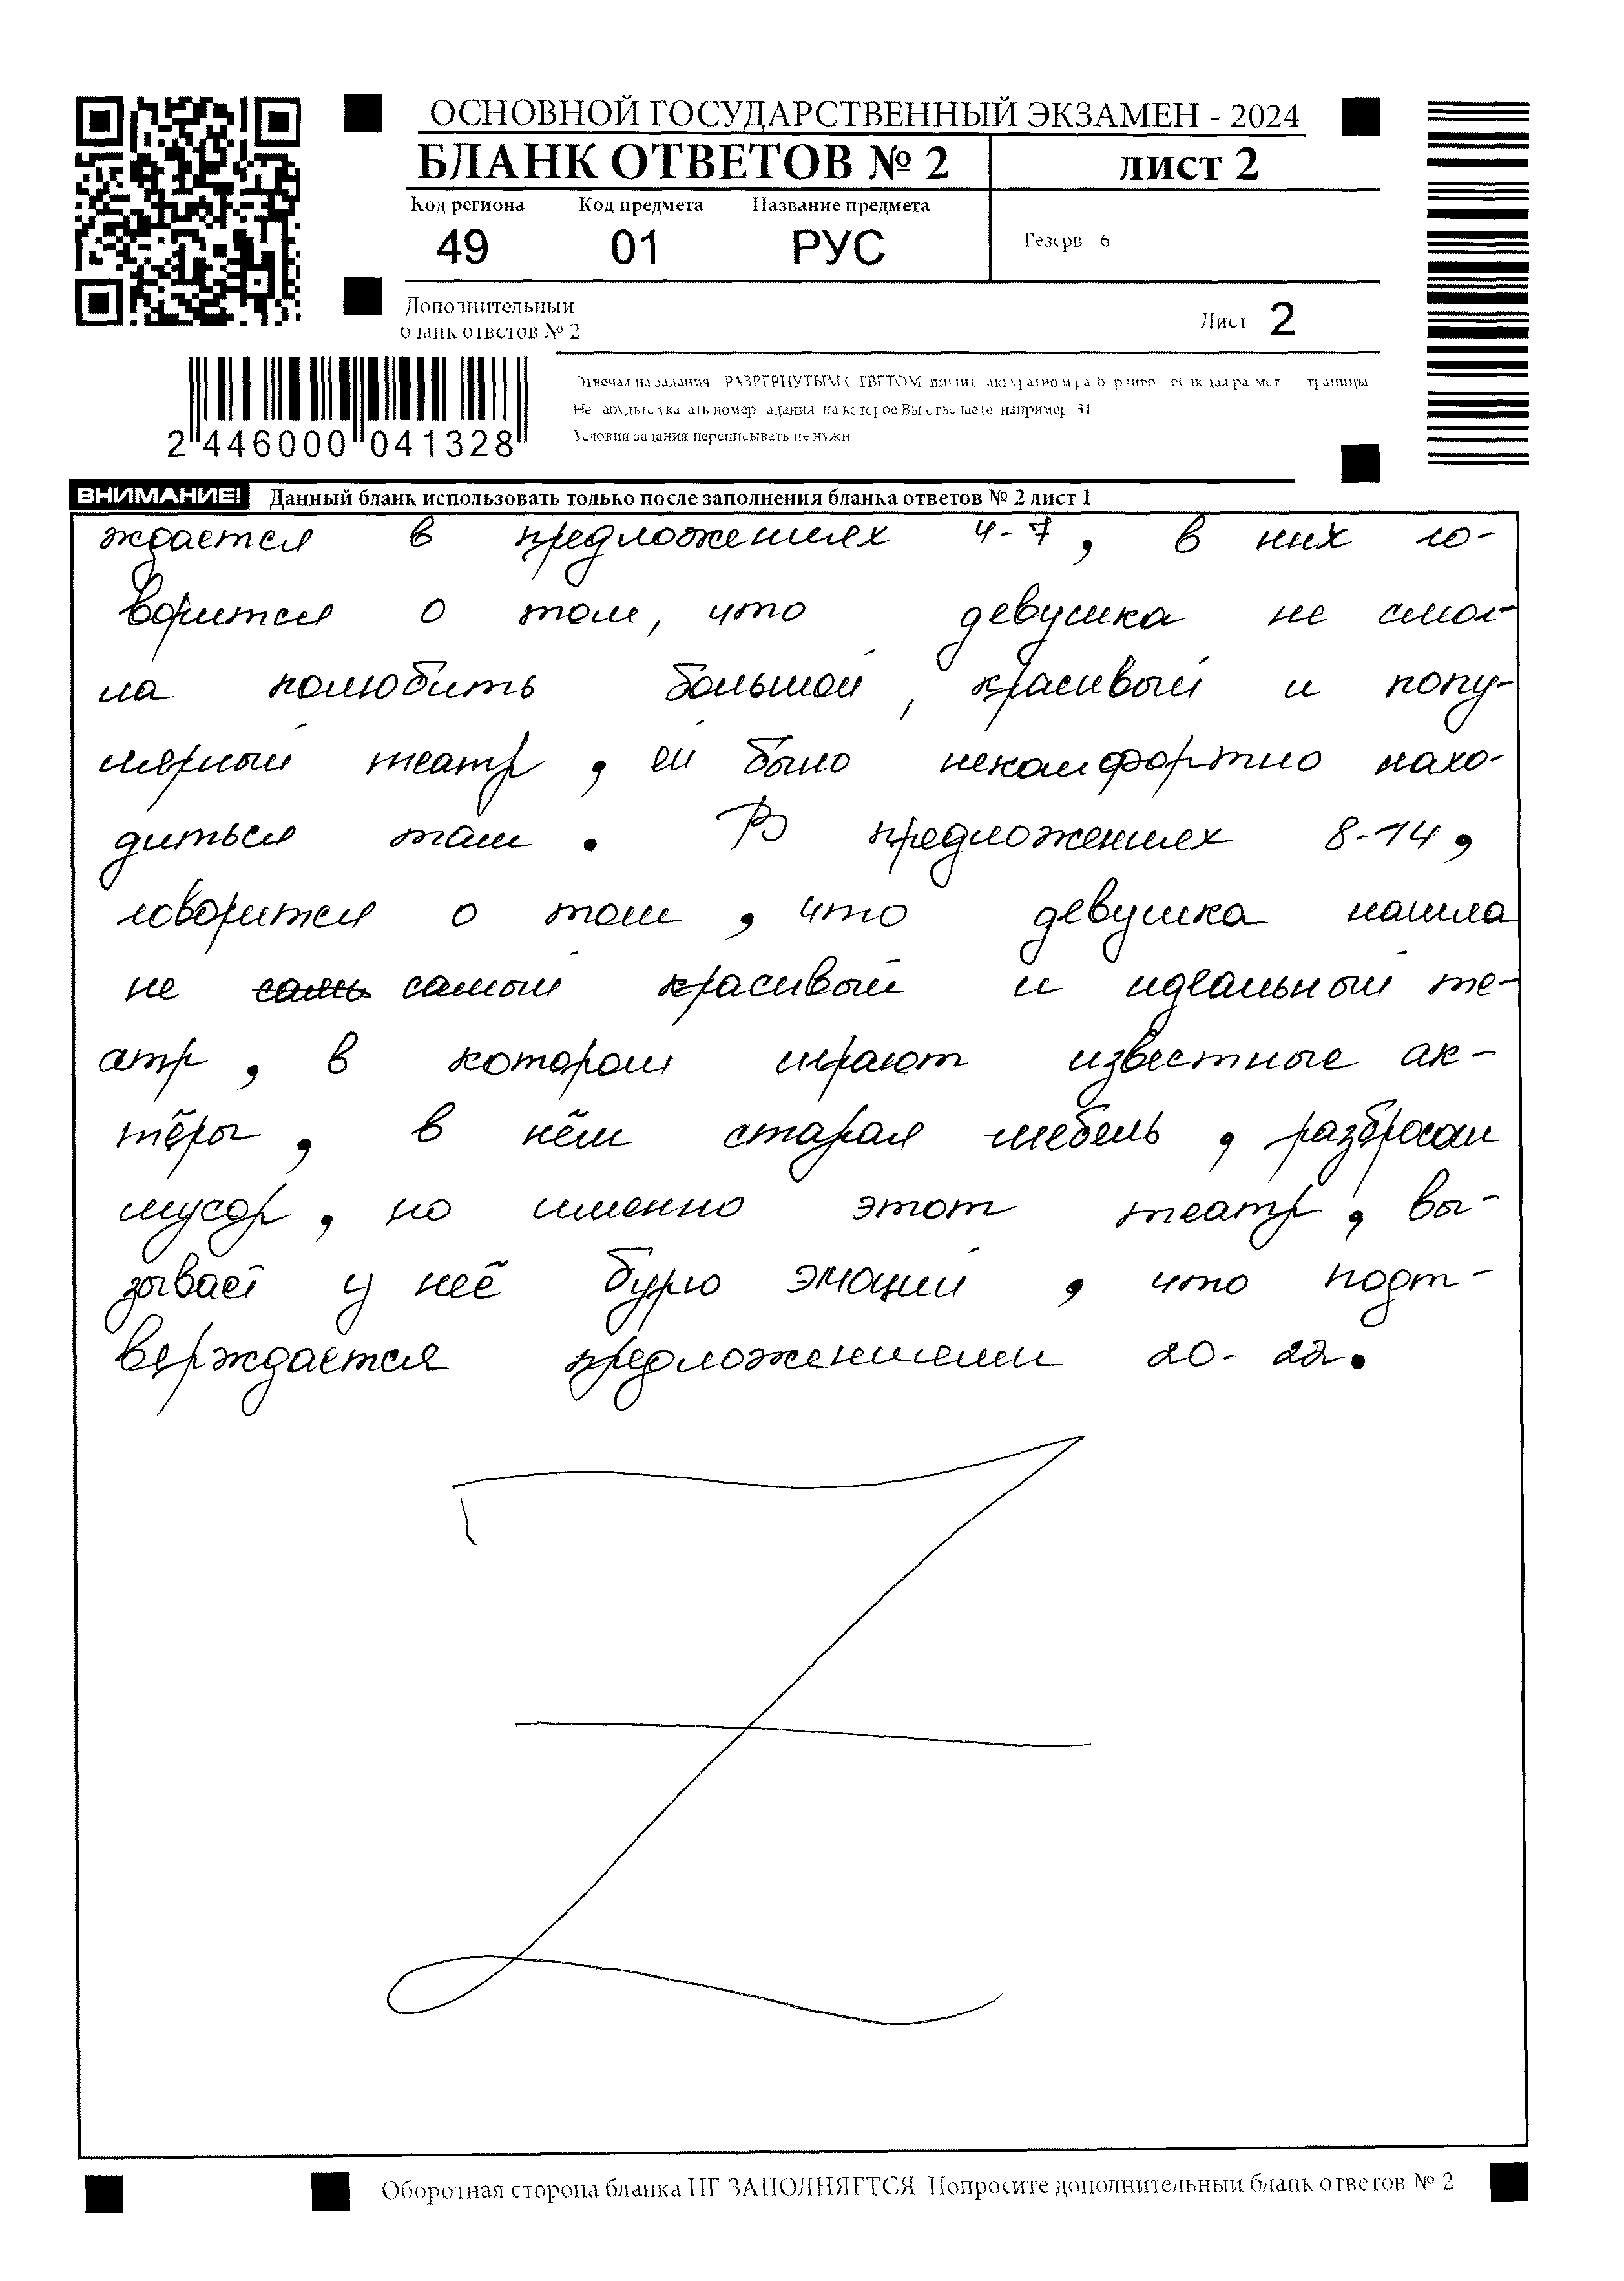 ОСНОВНОЙ ГОСУДАРСТВЕННЫЙ ЭКЗАМЕН - 2024
БЛАНК ОТВЕТОВ № 2
лист 2
Код региона Код предмета Название предмета
49 01 РУС
Резерв 6
Дополнительный
бланк ответов № 2
Лист 2
2 446000 041328
Условия задания переписывать не нужно
ВНИМАНИЕ! Данный бланк использовать только после заполнения бланка ответов № 2 лист 1
ждается в предложениях 4-7, в них го-
ворится о том, что девушка не смог-
ла полюбить большой, красивый и попу-
лярный театр, ей было некомфортно нахо-
диться там. В предложениях 8-14,
говорится о том, что девушка нашла
не самый красивый и идеальный те-
атр, в котором играют известные ак-
тёры, в нём старая мебель, разбросан
мусор, но именно этот театр, вы-
зывает у неё бурю эмоций, что подт-
верждается предложениями 20-22.
Оборотная сторона бланка НЕ ЗАПОЛНЯЕТСЯ Попросите дополнительный бланк ответов № 2